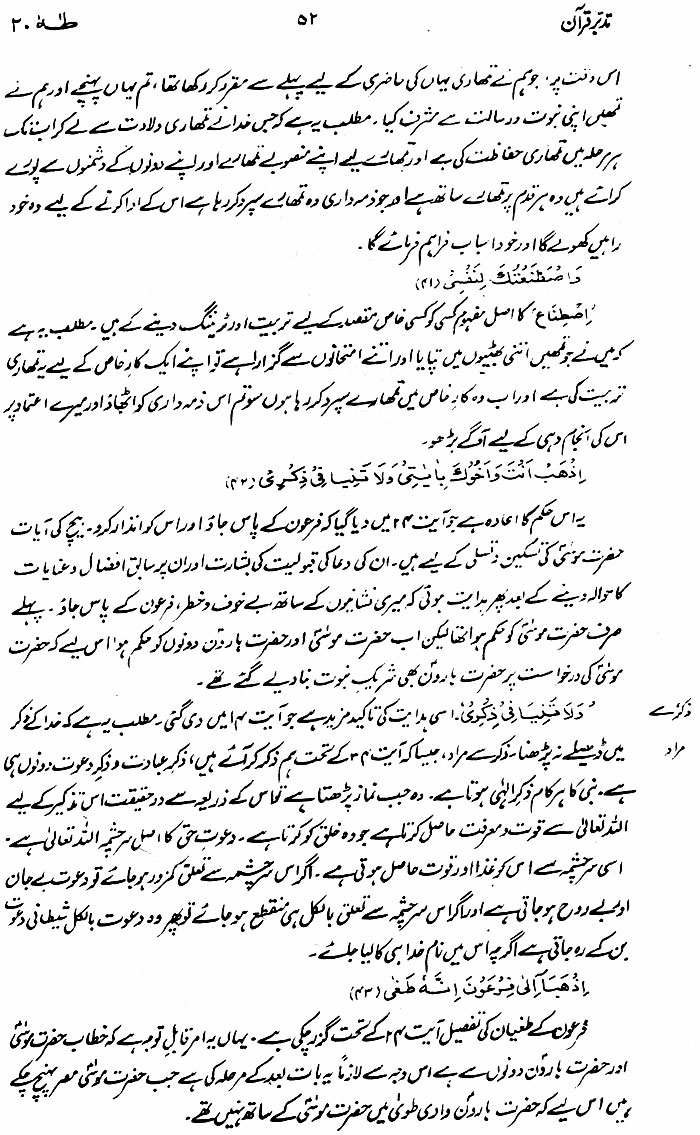 تدبّرِ قرآن ۵۲ طٰہٰ ۲۰
اس وقت پر، جو ہم نے تمھاری یہاں کی حاضری کے لیے پہلے سے مقرر کر رکھا تھا، تم یہاں پہنچے اور ہم نے
تمھیں اپنی نبوت و رسالت سے مشرف کیا۔ مطلب یہ ہے کہ جس خدا نے تمھاری ولادت سے لے کر اب تک
ہر مرحلہ میں تمھاری حفاظت کی ہے اور تمھارے لیے اپنے منصوبے تمھارے اور اپنے دونوں کے دشمنوں سے پورے
کرائے ہیں وہ ہر قدم پر تمھارے ساتھ ہے اور جو ذمہ داری وہ تمھارے سپرد کر رہا ہے اس کے ادا کرنے کے لیے وہ خود
راہیں کھولے گا اور خود اسباب فراہم فرمائے گا۔
وَاصْطَنَعْتُكَ لِنَفْسِیْ (۴۱)
'اِصْطِنَاع' کا اصل مفہوم کسی کو کسی خاص مقصد کے لیے تربیت اور ٹریننگ دینے کے ہیں۔ مطلب یہ ہے
کہ میں نے جو تمھیں اتنی بھٹیوں میں تپایا اور اتنے امتحانوں سے گزارا ہے تو اپنے ایک کارِ خاص کے لیے یہ تمھاری
تربیت کی ہے اور اب وہ کارِ خاص میں تمھارے سپرد کر رہا ہوں سو تم اس ذمہ داری کو اٹھاؤ اور میرے اعتماد پر
اس کی انجام دہی کے لیے آگے بڑھو۔
اِذْهَبْ اَنْتَ وَاَخُوْكَ بِاٰیٰتِیْ وَلَا تَنِیَا فِیْ ذِكْرِیْ (۴۲)
یہ اس حکم کا اعادہ ہے جو آیت ۲۴ میں دیا گیا کہ فرعون کے پاس جاؤ اور اس کو انذار کرو۔ بیچ کی آیات
حضرت موسٰیؑ کی تسکین و تسلی کے لیے ہیں۔ ان کی دعا کی قبولیت کی بشارت اور ان پر سابق افضال و عنایات
کا حوالہ دینے کے بعد پھر ہدایت ہوئی کہ میری نشانیوں کے ساتھ بے خوف و خطر، فرعون کے پاس جاؤ۔ پہلے
صرف حضرت موسٰیؑ کو حکم ہوا تھا لیکن اب حضرت موسٰیؑ اور حضرت ہارونؑ دونوں کو حکم ہوا اس لیے کہ حضرت
موسٰیؑ کی درخواست پر حضرت ہارونؑ بھی شریکِ نبوت بنا دیے گئے تھے۔
ذکر سے 'وَلَا تَنِیَا فِیْ ذِكْرِیْ'۔ اسی ہدایت کی تاکید مزید ہے جو آیت ۱۴ میں دی گئی۔ مطلب یہ ہے کہ خدا کے ذکر
مراد میں ڈھیلے نہ پڑھنا۔ ذکر سے مراد، جیسا کہ آیت ۳۴ کے تحت ہم ذکر کر آئے ہیں، ذکرِ عبادت و ذکرِ دعوت دونوں ہی
ہے۔ نبی کا ہر کام ذکرِ الٰہی ہوتا ہے۔ وہ جب نماز پڑھتا ہے تو اس کے ذریعہ سے درحقیقت اس تذکیر کے لیے
اللہ تعالیٰ سے قوت و معرفت حاصل کرتا ہے جو وہ خلق کو کرتا ہے۔ دعوتِ حق کا اصل سرچشمہ اللہ تعالیٰ ہے۔
اسی سرچشمہ سے اس کو غذا اور قوت حاصل ہوتی ہے۔ اگر اس سرچشمہ سے تعلق کمزور ہو جائے تو دعوت بے جان
اور بے روح ہو جاتی ہے اور اگر اس سرچشمہ سے تعلق بالکل ہی منقطع ہو جائے تو پھر وہ دعوت بالکل شیطانی دعوت
بن کے رہ جاتی ہے اگرچہ اس میں نام خدا ہی کا لیا جائے۔
اِذْهَبَآ اِلٰی فِرْعَوْنَ اِنَّهٗ طَغٰی (۴۳)
فرعون کے طغیان کی تفصیل آیت ۲۴ کے تحت گزر چکی ہے۔ یہاں یہ امر قابلِ توجہ ہے کہ خطاب حضرت موسٰیؑ
اور حضرت ہارونؑ دونوں سے ہے اس وجہ سے لازماً یہ بات بعد کے مرحلہ کی ہے جب حضرت موسٰیؑ مصر پہنچ چکے
ہیں اس لیے کہ حضرت ہارونؑ وادیِ طویٰ میں حضرت موسٰیؑ کے ساتھ نہیں تھے۔